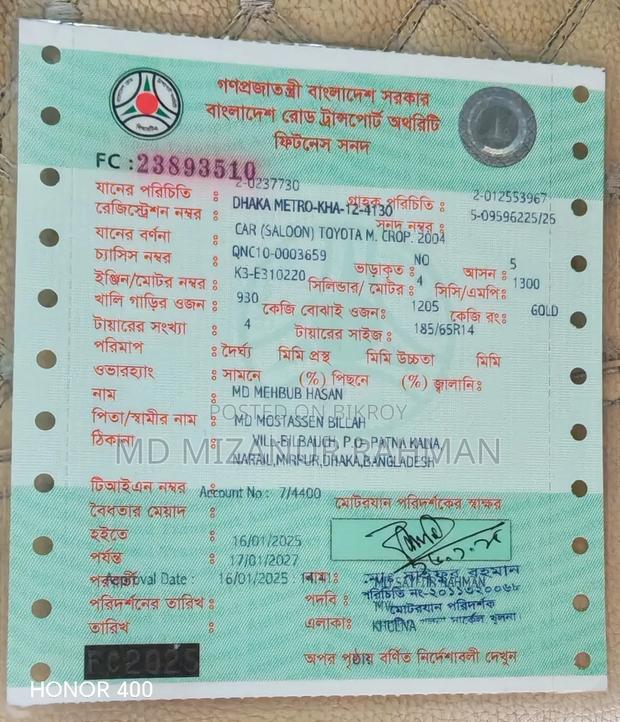 গণপ্রজাতন্ত্রী বাংলাদেশ সরকার
বাংলাদেশ রোড ট্রান্সপোর্ট অথরিটি
ফিটনেস সনদ
FC : 23893510
যানের পরিচিতি : 2-0237730 গ্রাহক পরিচিতি : 2-012553967
রেজিস্ট্রেশন নম্বর : DHAKA METRO-KHA-12-4130 সনদ নম্বর : 5-09596225/25
যানের বর্ণনা : CAR (SALOON) TOYOTA M. CROP. 2004
চ্যাসিস নম্বর : QNC10-0003659 ভাড়াকৃত : NO আসন : 5
ইঞ্জিন/মোটর নম্বর : K3-E310220 সিলিন্ডার/ মোটর : 4 সিসি/এমপি: 1300
খালি গাড়ির ওজন : 930 কেজি বোঝাই ওজন: 1205 কেজি রং: GOLD
টায়ারের সংখ্যা : 4 টায়ারের সাইজ : 185/65R14
পরিমাপ : দৈর্ঘ্য মিমি প্রস্থ মিমি উচ্চতা মিমি
ওভারহ্যাং : সামনে (%) পিছনে (%) জ্বালানি :
নাম : MD MEHBUB HASAN
POSTED ON BIKROY
পিতা/স্বামীর নাম : MD MOSTASSEN BILLAH
MD MIZANUR RAHMAN
ঠিকানা : VILL-BILBAUCH, P.O- PATNA KALIA,
NARAIL,MIRPUR,DHAKA,BANGLADESH
টিআইএন নম্বর : Account No : 7/4400 মোটরযান পরিদর্শকের স্বাক্ষর
বৈধতার মেয়াদ :
হইতে : 16/01/2025
পর্যন্ত : 17/01/2027
Approval Date : 16/01/2025 নাম:
পরিদর্শনের তারিখ : পদবি : মোটরযান পরিদর্শক
তারিখ : এলাকা: KHULNA
FC2025 অপর পৃষ্ঠায় বর্ণিত নির্দেশাবলী দেখুন
HONOR 400